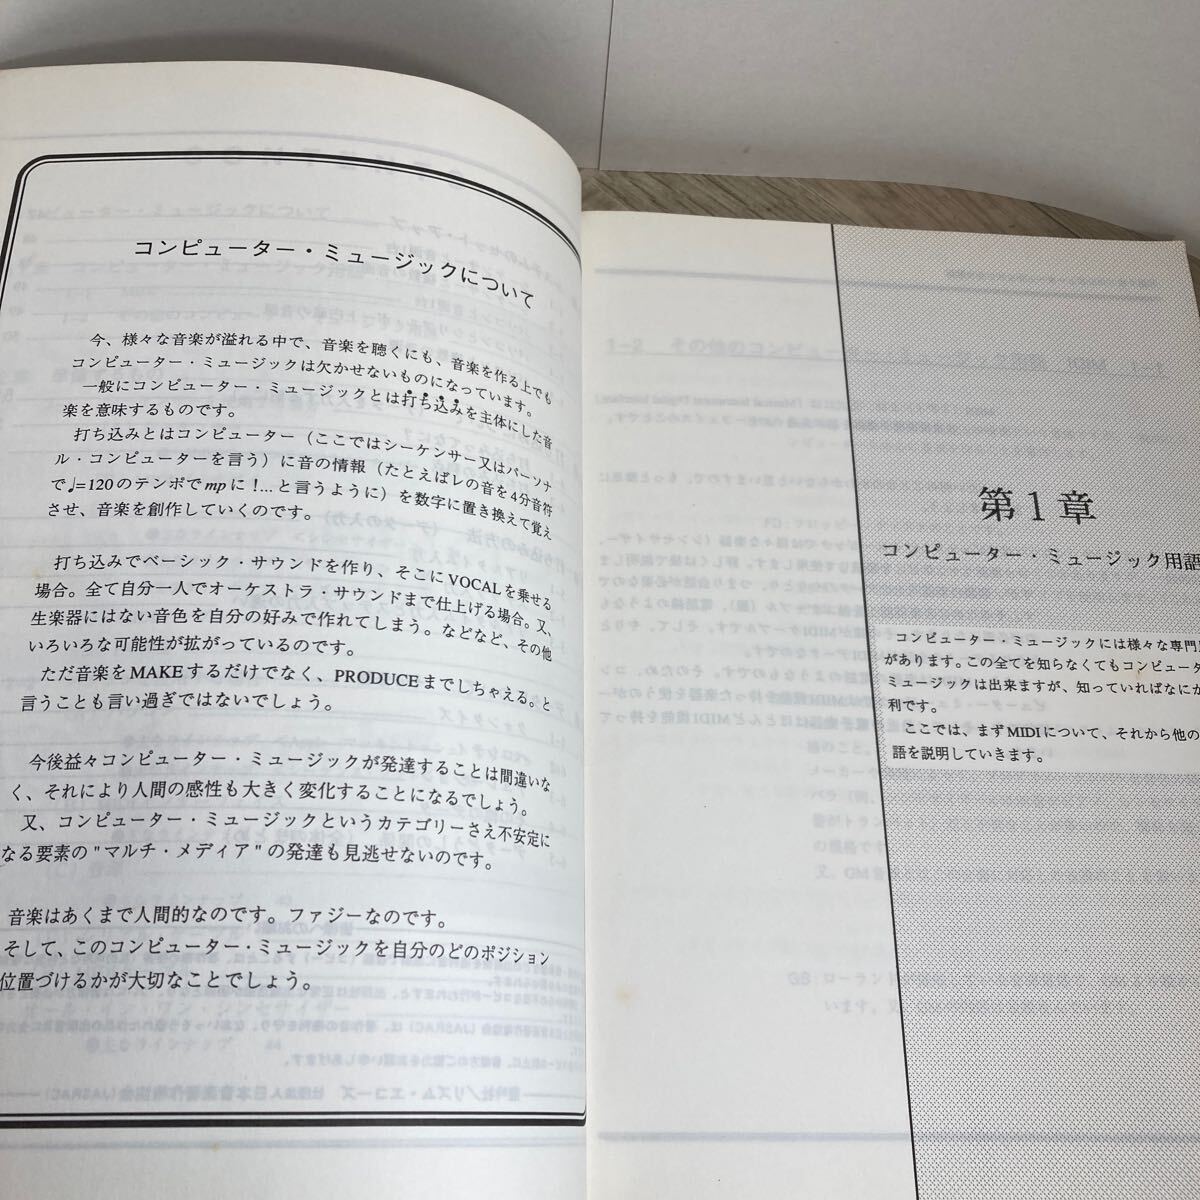 コンピューター・ミュージックについて
今、様々な音楽が溢れる中で、音楽を聴くにも、音楽を作る上でも
コンピューター・ミュージックは欠かせないものになっています。
一般にコンピューター・ミュージックとは打ち込みを主体にした音
楽を意味するものです。
打ち込みとはコンピューター（ここではシーケンサー又はパーソナ
ル・コンピューターを言う）に音の情報（たとえばレの音を4分音符
で♩=120のテンポでmpに！...と言うように）を数字に置き換えて覚え
させ、音楽を創作していくのです。
打ち込みでベーシック・サウンドを作り、そこにVOCALを乗せる
場合。全て自分一人でオーケストラ・サウンドまで仕上げる場合。又、
生楽器にはない音色を自分の好みで作れてしまう。などなど、その他
いろいろな可能性が拡がっているのです。
ただ音楽をMAKEするだけでなく、PRODUCEまでしちゃえる。と
言うことも言い過ぎではないでしょう。
今後益々コンピューター・ミュージックが発達することは間違いな
く、それにより人間の感性も大きく変化することになるでしょう。
又、コンピューター・ミュージックというカテゴリーさえ不安定に
なる要素の"マルチ・メディア"の発達も見逃せないのです。
音楽はあくまで人間的なのです。ファジーなのです。
そして、このコンピューター・ミュージックを自分のどのポジション
位置づけるかが大切なことでしょう。
第1章
コンピューター・ミュージック用語
コンピューター・ミュージックには様々な専門
があります。この全てを知らなくてもコンピュータ
ミュージックは出来ますが、知っていればなにか
利です。
ここでは、まずMIDIについて、それから他の
語を説明していきます。